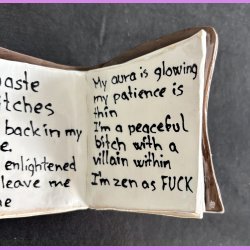 aste
itches
backin my
e.
enlightened
leave me
ne
My aura is glowing
my patience is
thin
I'm a peaceful
bitch with a
villain within
I'm zen as FUCK